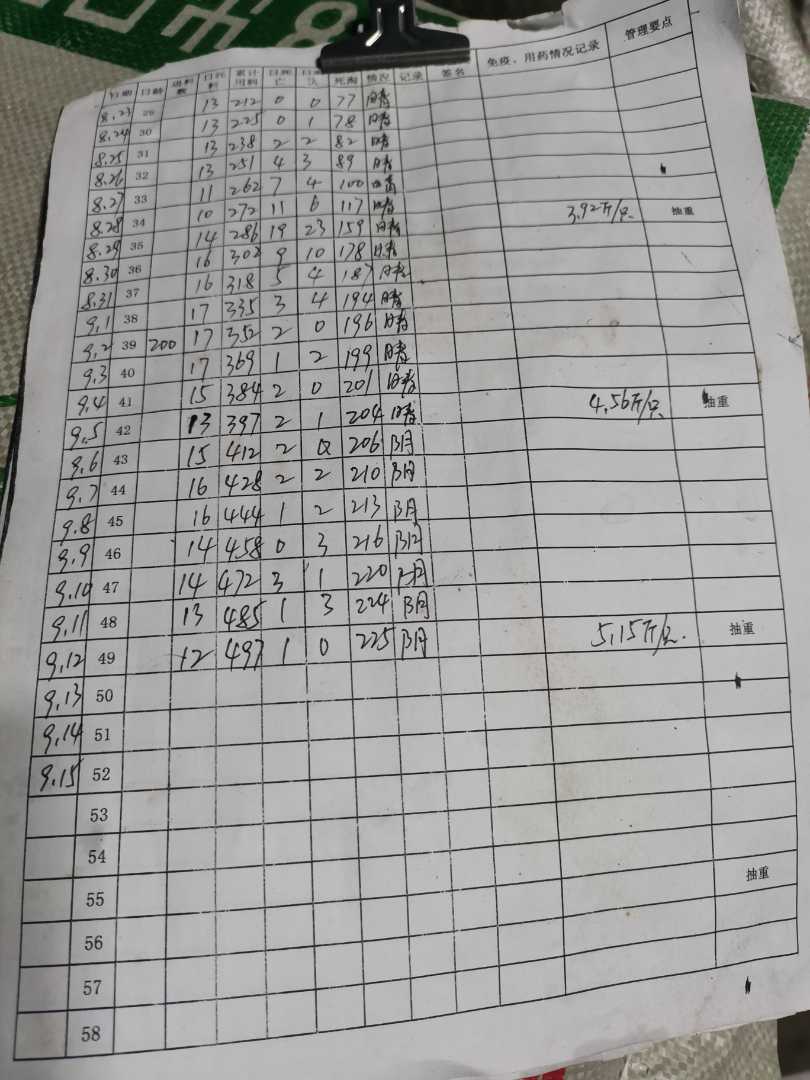 日期 日龄 进料数 日耗料 累计用料 日死亡 日淘汰 死淘 情况 记录 签名 免疫、用药情况记录 管理要点
8.23 29 13 212 0 0 77 晴
8.24 30 13 225 0 1 78 晴
8.25 31 13 238 2 2 82 晴
8.26 32 13 251 4 3 89 晴
8.27 33 11 262 7 4 100
8.28 34 10 272 11 6 117 晴 3.92斤/只 抽重
8.29 35 14 286 19 23 159 晴
8.30 36 16 302 9 10 178 晴
8.31 37 16 318 5 4 187 晴
9.1 38 17 335 3 4 194 晴
9.2 39 200 17 352 2 0 196 晴
9.3 40 17 369 1 2 199 晴
9.4 41 15 384 2 0 201 晴
9.5 42 13 397 2 1 204 晴 4.56斤/只 抽重
9.6 43 15 412 2 0 206 阴
9.7 44 16 428 2 2 210 阴
9.8 45 16 444 1 2 213 阴
9.9 46 14 458 0 3 216 阴
9.10 47 14 472 3 1 220 阴
9.11 48 13 485 1 3 224 阴
9.12 49 12 497 1 0 225 阴 5.15斤/只. 抽重
9.13 50
9.14 51
9.15 52
53
54
55
抽重
56
57
58